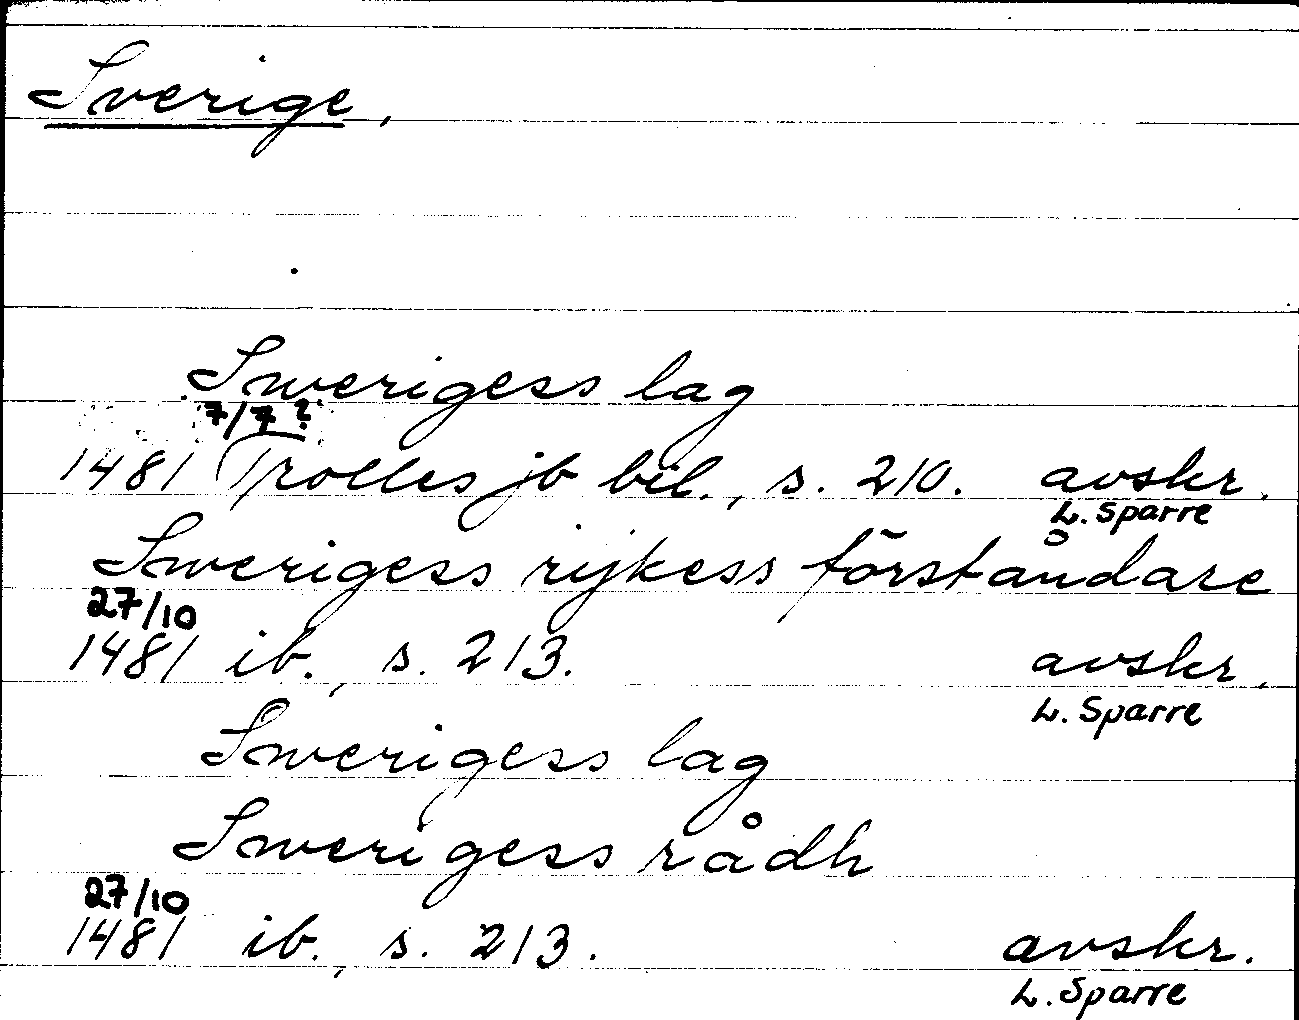 Sverige,
Swerigess lag
7/7?
1481 Trolles jb bil., s. 210. avskr.
L. Sparre
Swerigess rijkess förståndare
27/10
1481 ib., s. 213. avskr.
L. Sparre
Swerigess lag
Swerigess rådh
27/10
1481 ib., s. 213. avskr.
L. Sparre